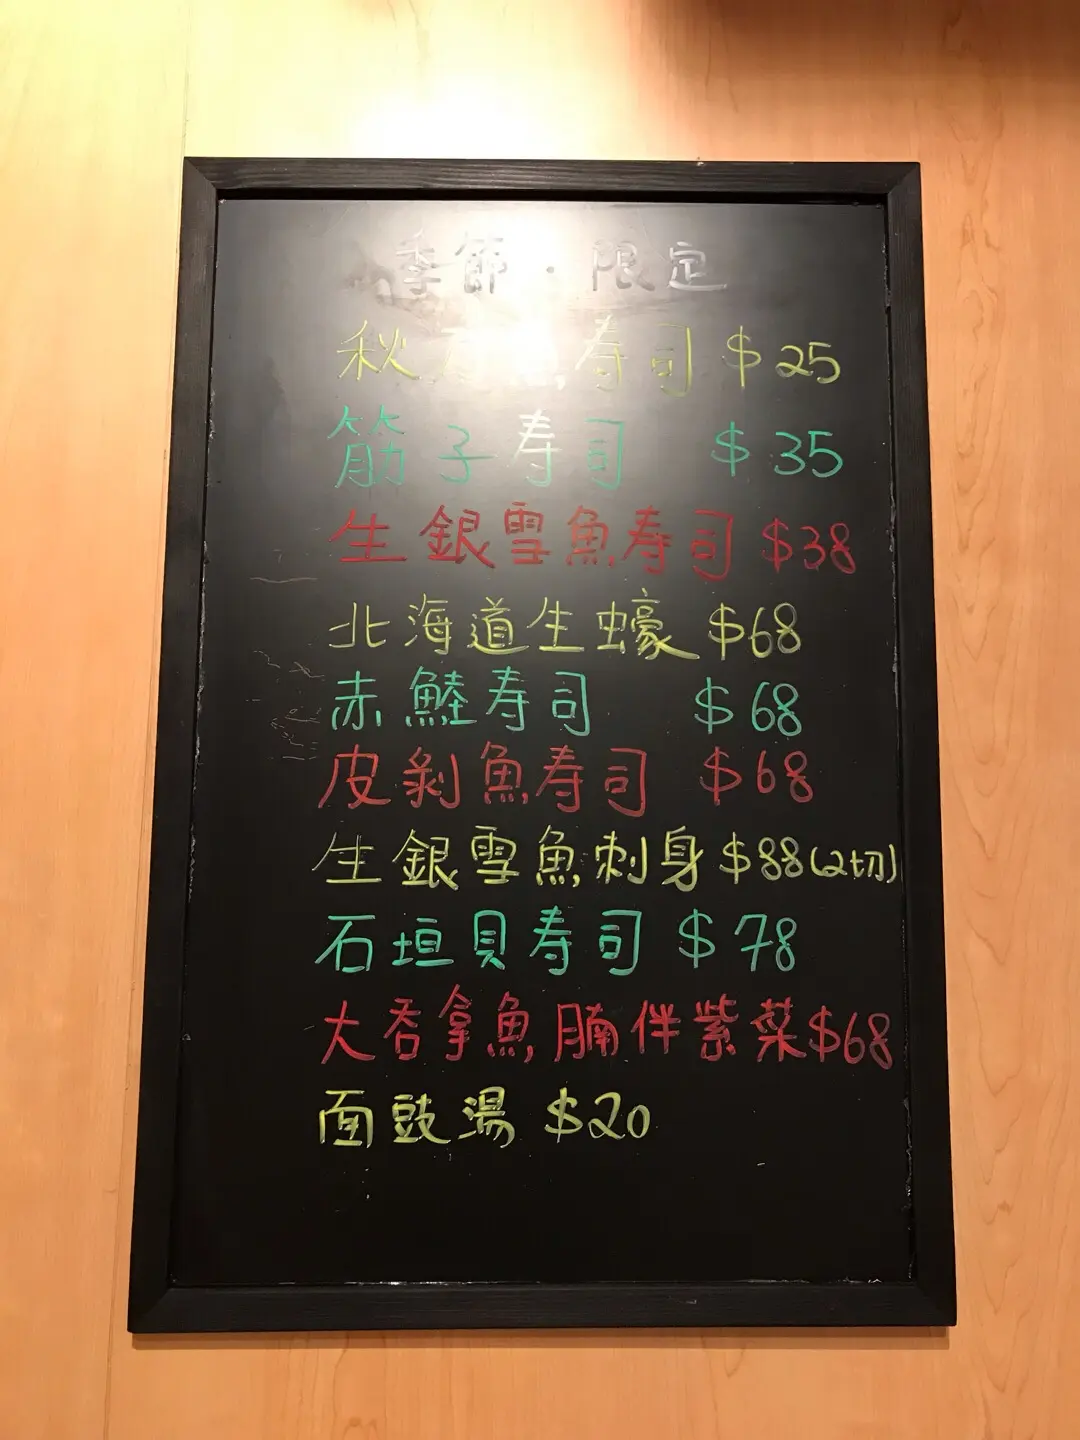 季節·限定
秋刀魚寿司 $25
筋子寿司 $35
生銀雪魚寿司 $38
北海道生蠔 $68
赤鯥寿司 $68
皮剥魚寿司 $68
生銀雪魚刺身 $88(2切)
石垣貝寿司 $78
大吞拿魚腩伴紫菜 $68
面豉湯 $20